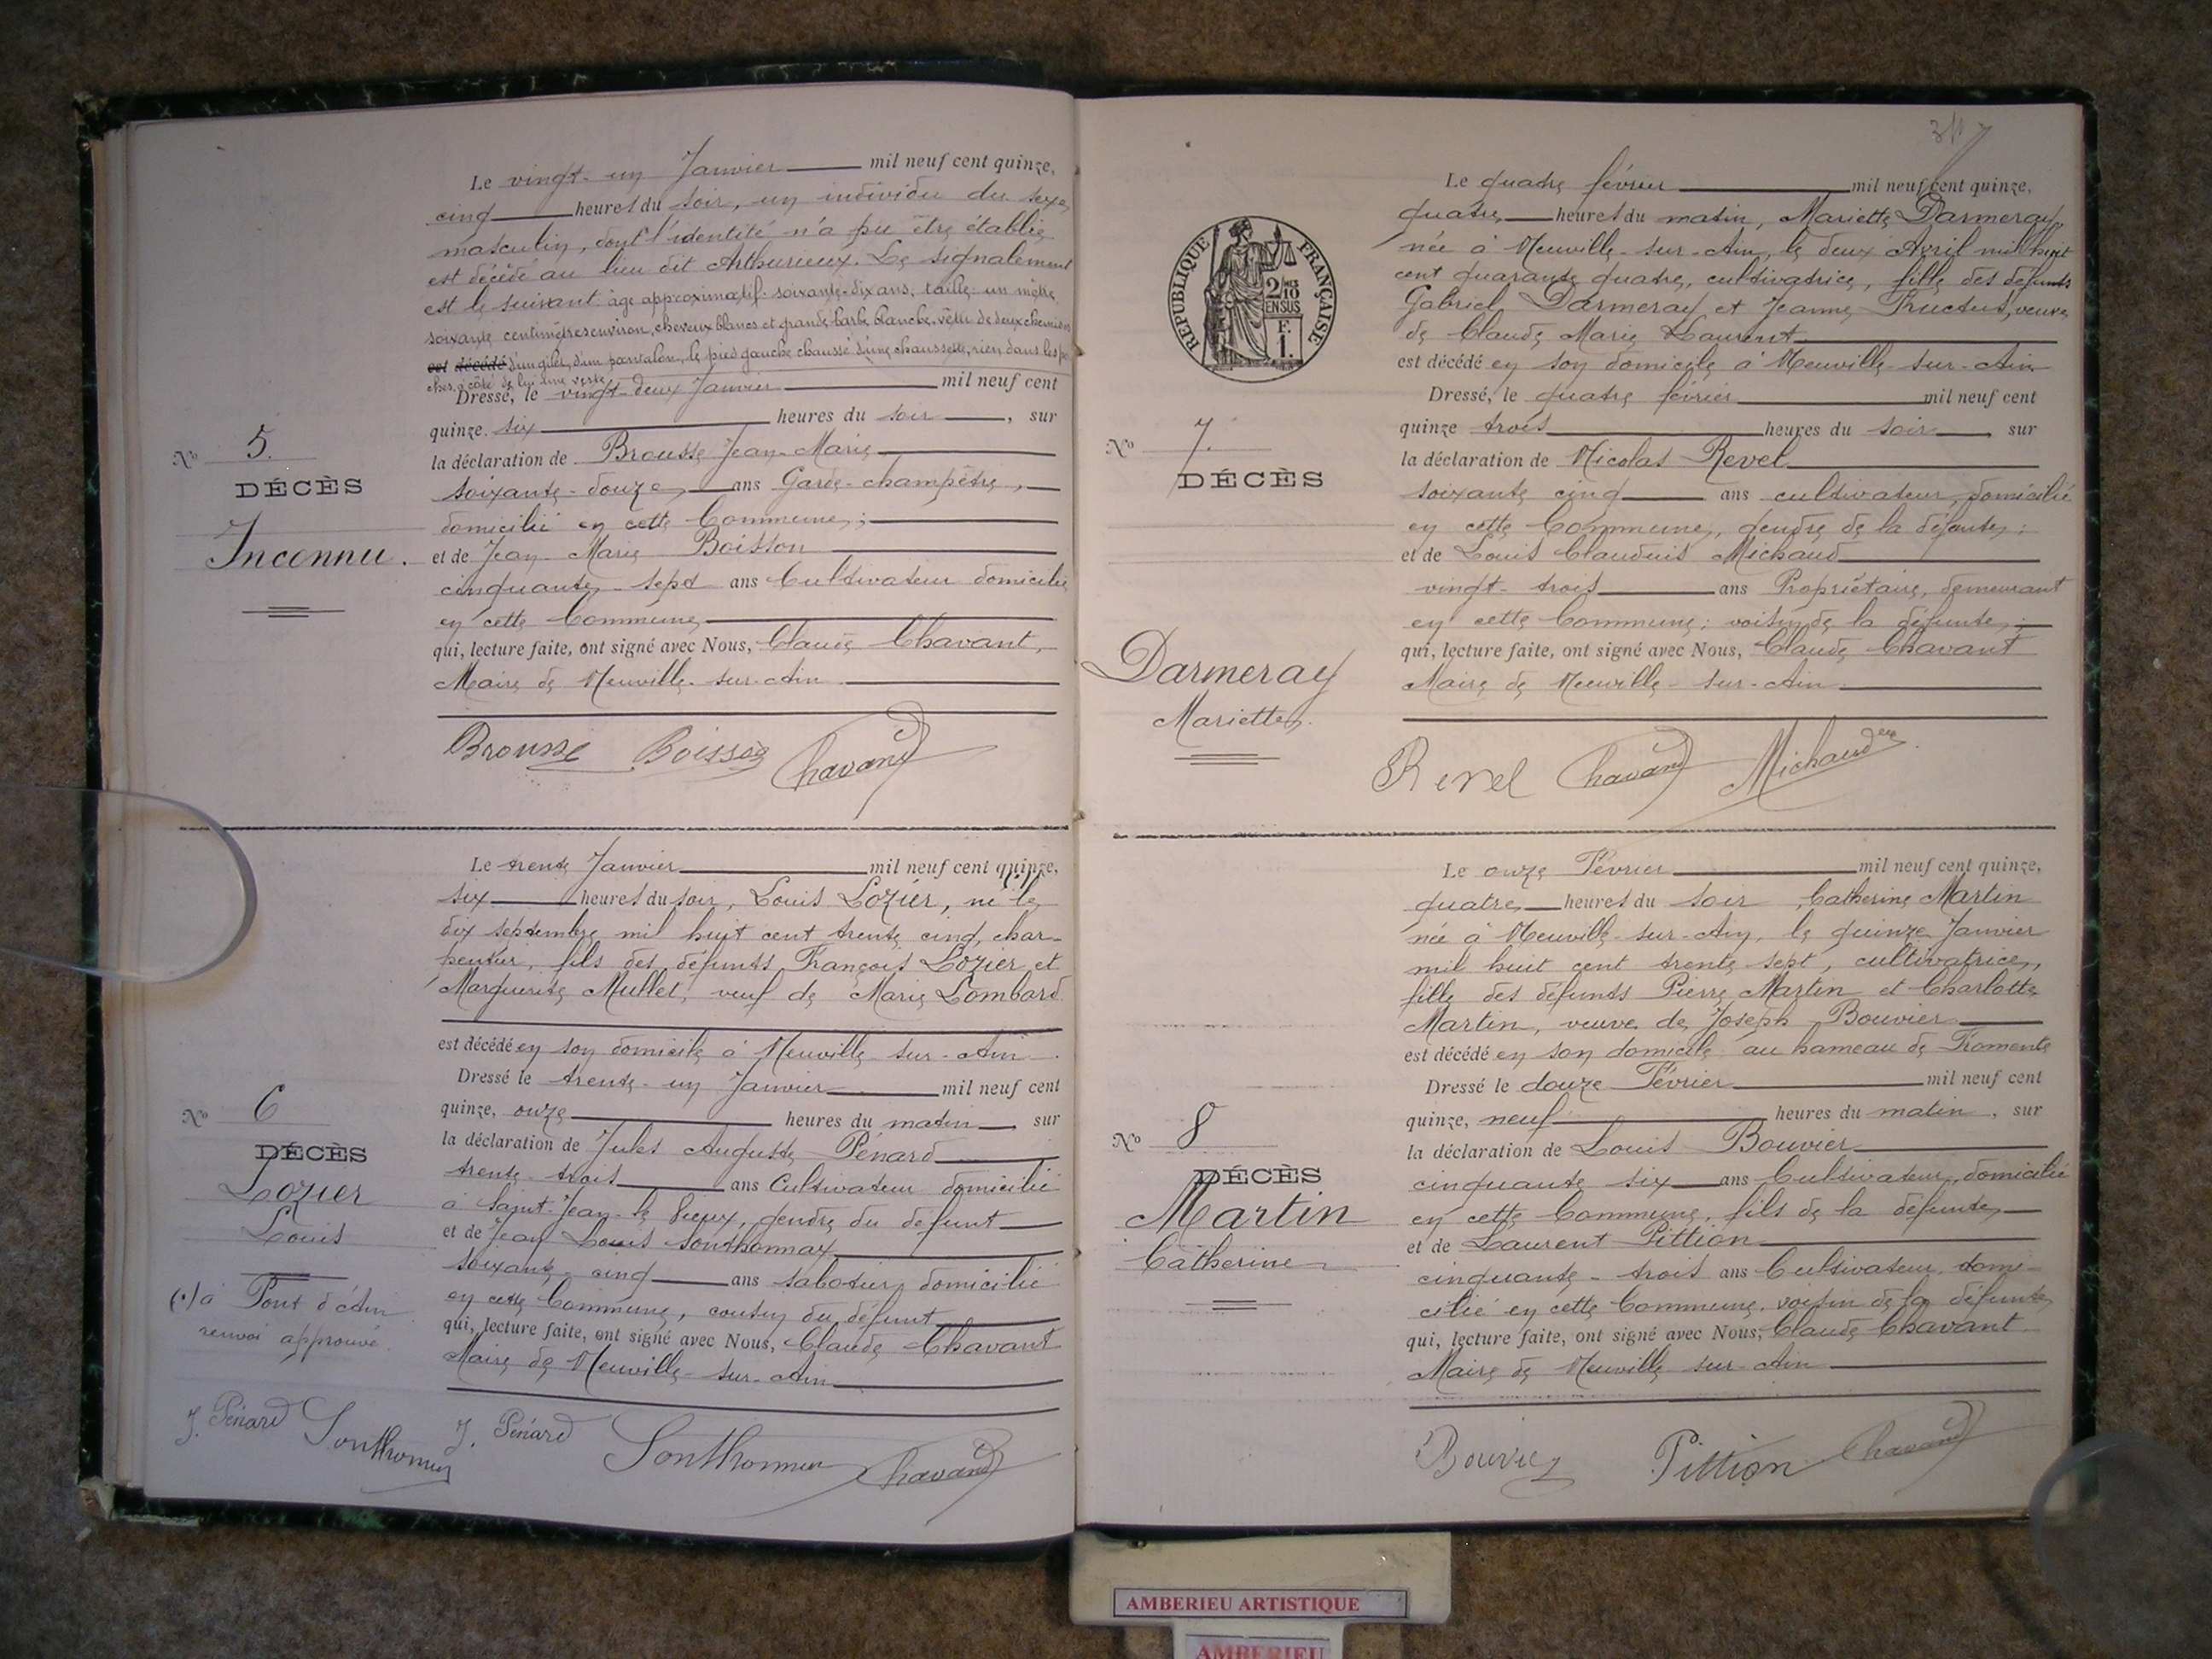 Le vingt-un Janvier mil neuf cent quinze,
cinq heures du soir, un individu du sexe
masculin, dont l'identité n'a pu être établie
est décédé au lieu dit Arthurieux. Le signalement
est le suivant: âge approximatif: soixante-dix ans, taille: un mètre
soixante centimètres environ, cheveux blancs et grande barbe blanche, vêtu de deux chemises
est décédé d'un gilet, d'un pantalon, le pied gauche chaussé d'une chaussette, rien dans les po-
ches, à côté de lui une veste
Dressé, le vingt-deux Janvier mil neuf cent
quinze. six heures du soir, sur
la déclaration de Brousse Jean-Marie
soixante-douze ans Garde-champêtre,
domicilié en cette Commune;
et de Jean Marie Boisson
cinquante-sept ans Cultivateur domicilié
en cette Commune
qui, lecture faite, ont signé avec Nous, Claude Chavant,
Maire de Neuville-sur-Ain
Nº 5.
DÉCÈS
Inconnu.
Brousse Boisson Chavant
Le trente Janvier mil neuf cent quinze,
six heures du soir, Louis Lozier, né le
dix septembre mil huit cent trente cinq, char-
pentier, fils des défunts François Lozier et
Marguerite Mullet, veuf de Marie Lombard
est décédé en son domicile à Neuville-sur-Ain.
Dressé le trente-un Janvier mil neuf cent
quinze, onze heures du matin, sur
la déclaration de Jules Auguste Pénard
trente-trois ans Cultivateur domicilié
à Saint-Jean-le Vieux, gendre du défunt
et de Jean Louis Sonthonnax
soixante-cinq ans sabotier, domicilié
en cette Commune, cousin du défunt
qui, lecture faite, ont signé avec Nous, Claude Chavant
Maire de Neuville-sur-Ain
Nº 6
DÉCÈS
Lozier
Louis
(·) à Pont d'Ain
renvoi approuvé.
J. Pénard Sonthonnax J. Pénard Sonthonnax Chavant
7
RÉPUBLIQUE FRANÇAISE
2/10 EN SUS
F. 1.
Le quatre février mil neuf cent quinze,
quatre heures du matin, Mariette Darmeray,
née à Neuville-sur-Ain, le deux Avril mil huit
cent quarante quatre, cultivatrice, fille des défunts
Gabriel Darmeray et Jeanne Fructus, veuve
de Claude Marie Laurent
est décédé en son domicile à Neuville-sur-Ain
Dressé, le quatre février mil neuf cent
quinze trois heures du soir, sur
la déclaration de Nicolas Revel
soixante cinq ans cultivateur, domicilié
en cette Commune, gendre de la défunte;
et de Louis Claudius Michaud
vingt-trois ans Propriétaire, demeurant
en cette Commune; voisin de la défunte;
qui, lecture faite, ont signé avec Nous, Claude Chavant
Maire de Neuville-sur-Ain
Nº 7.
DÉCÈS
Darmeray
Mariette
Revel Chavant Michaud
Le onze Février mil neuf cent quinze,
quatre heures du soir, Catherine Martin
née à Neuville-sur-Ain, le quinze Janvier
mil huit cent trente sept, cultivatrice,
fille des défunts Pierre Martin et Charlotte
Martin, veuve de Joseph Bouvier
est décédé en son domicile au hameau de Fromente
Dressé le douze Février mil neuf cent
quinze, neuf heures du matin, sur
la déclaration de Louis Bouvier
cinquante six ans Cultivateur, domicilié
en cette Commune, fils de la défunte,
et de Laurent Pittion
cinquante-trois ans Cultivateur domi-
cilié en cette Commune. voisin de la défunte
qui, lecture faite, ont signé avec Nous, Claude Chavant
Maire de Neuville sur-Ain
Nº 8
DÉCÈS
Martin
Catherine
Bouvier Pittion Chavant
AMBERIEU ARTISTIQUE
AMBERIEU